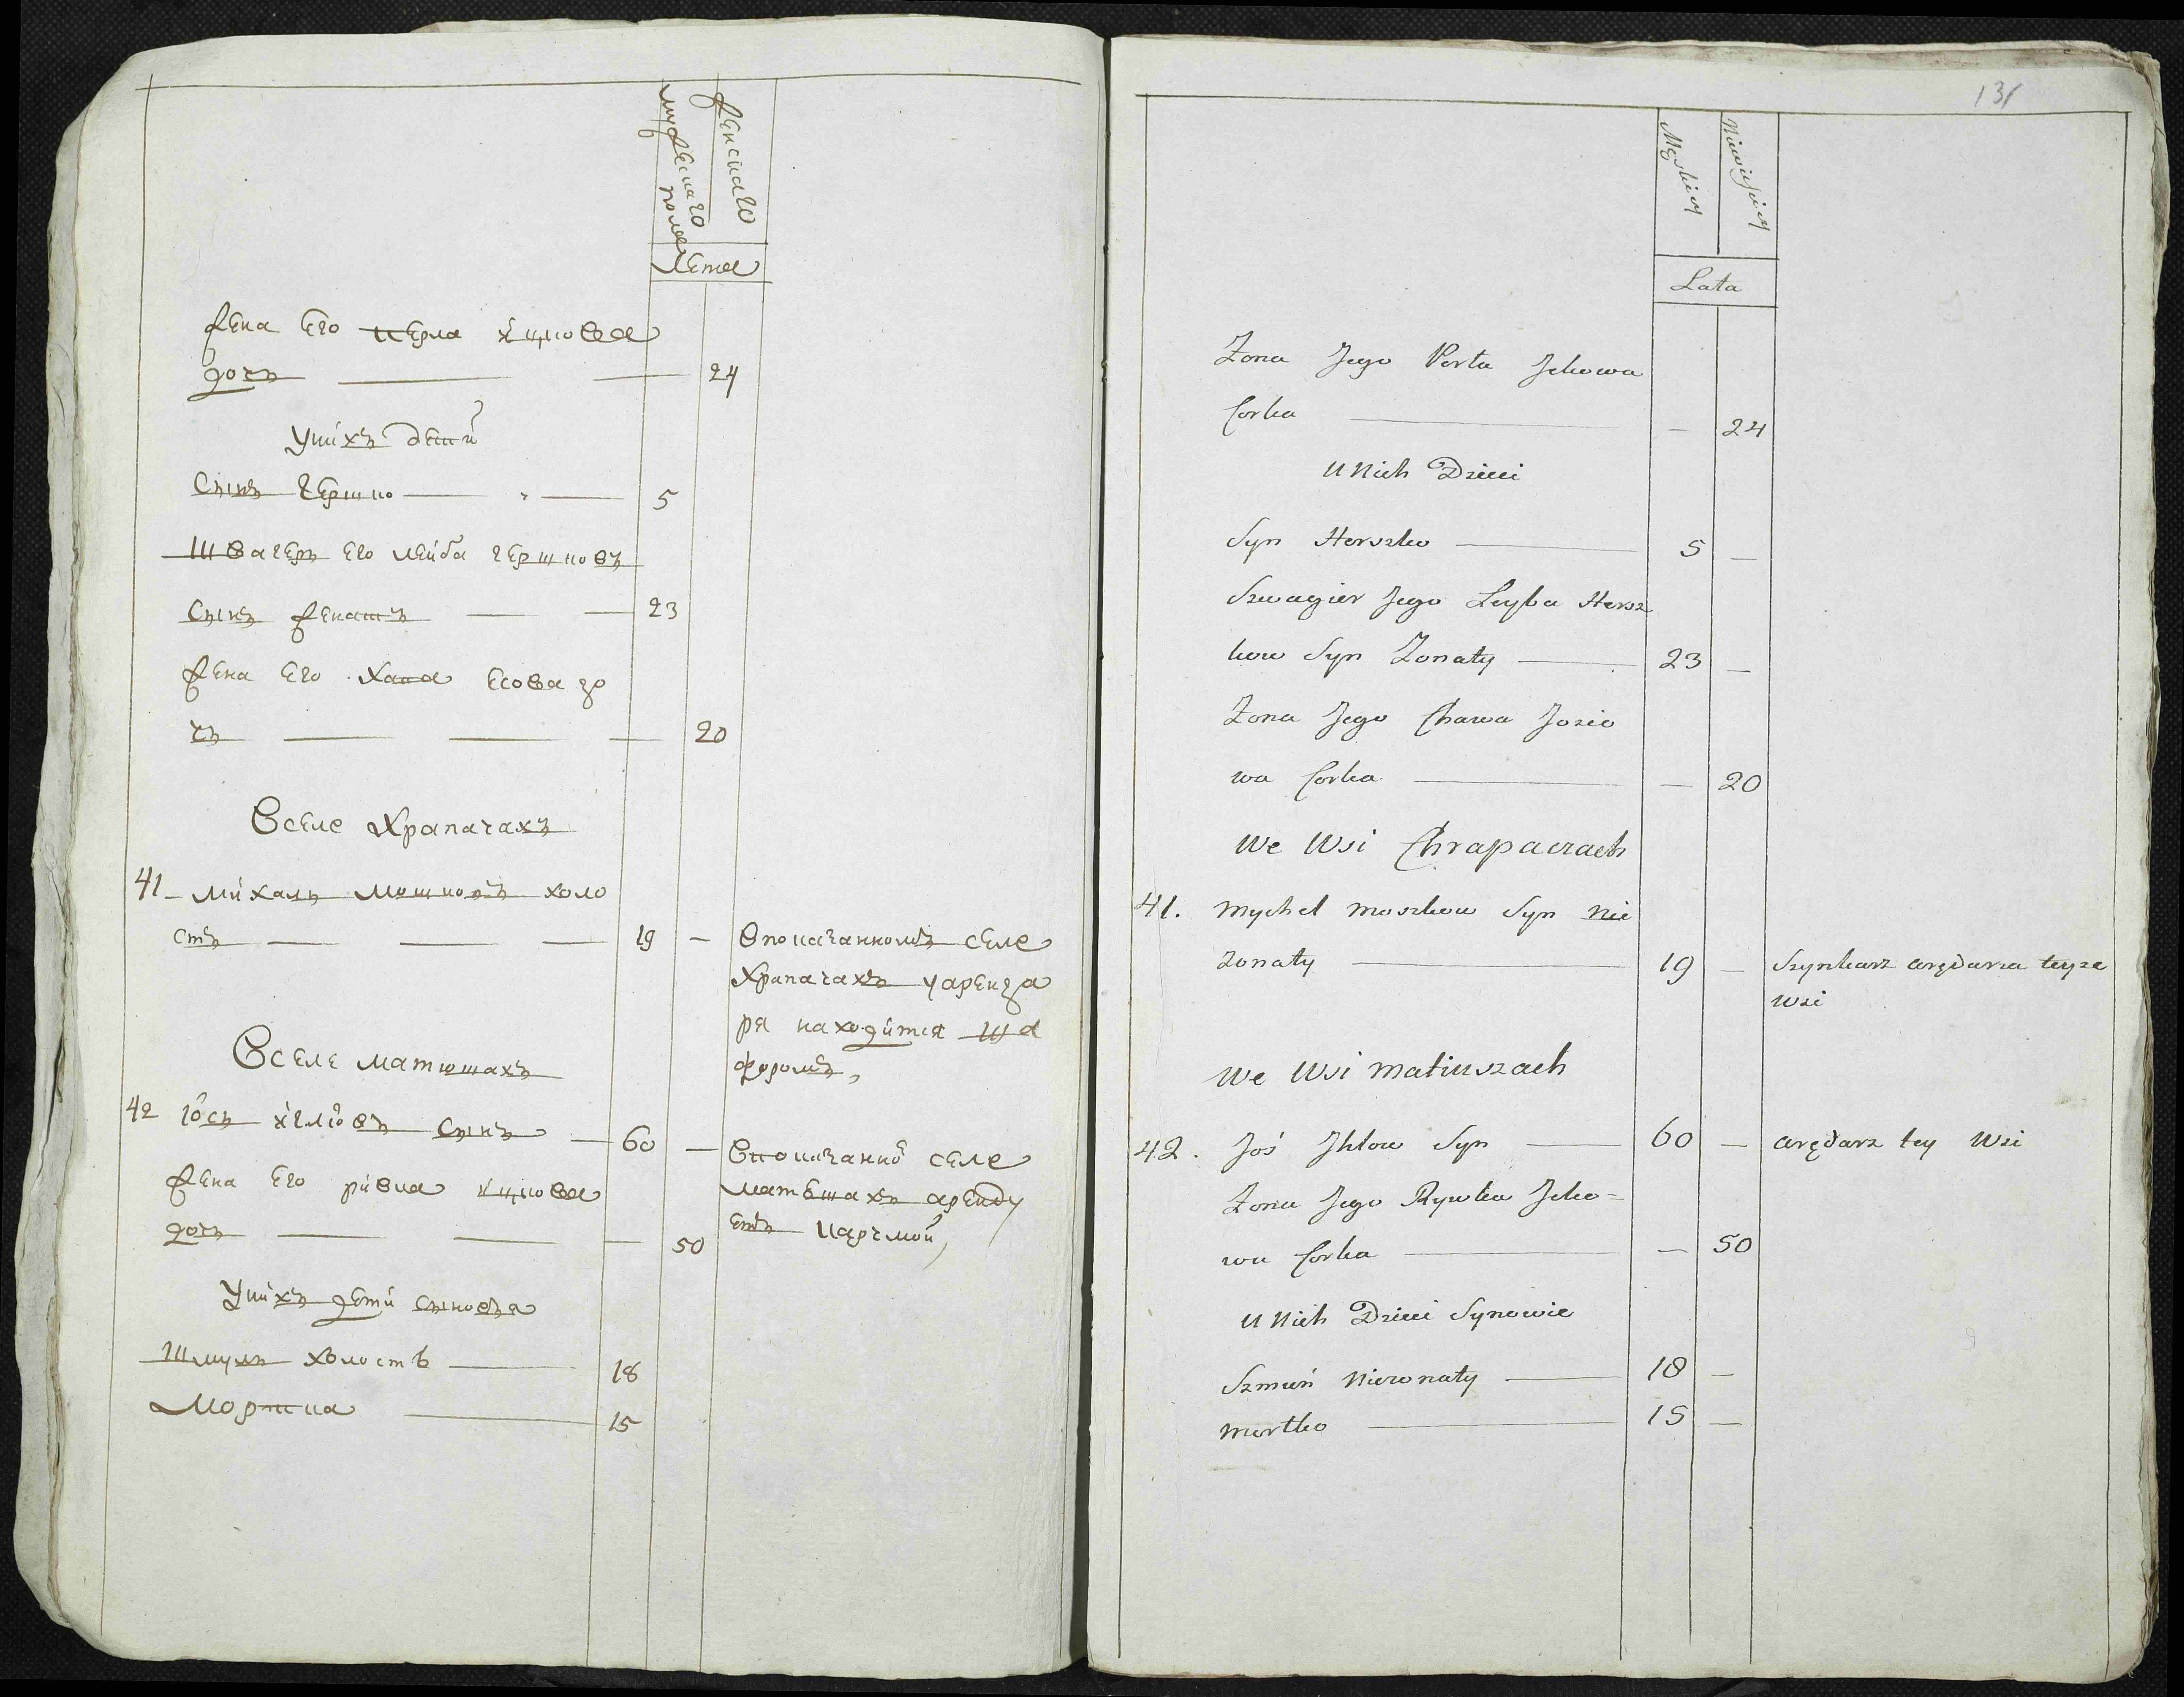 мужескаго
полу
женскаго
Лета
жена Его перла ицкова
дочь 24
У нихъ дети
Сынъ Гершко 5
Швагеръ Его лейба гершковъ
Сынъ женатъ 23
жена Его хава Есова до
чь 20
В селе Храпачахъ
41 Михаль Мошковъ холо
стъ 19 —
В показанномъ селе
Храпачахъ у аренда
ря находится ша
форомъ,
В селе матюшахъ
42 Іось Сынъ 60 —
жена Его ривка ицкова
дочь 50
В показанно селе
матюшахъ аренду
етъ карчмой,
У нихъ дети сыновья
Шмуль холостъ 18
Мортка 15
131
Męskiey
Niewieskiey
Lata
Zona Jego Perla Jckowa
Corka — 24
U Nich Dzieci
Syn Herszko 5 —
Szwagier Jego Leyba Hersz
kow Syn Zonaty 23 —
Zona Jego Chawa Josio
wa Corka — 20
We Wsi Chrapaczach
41. Mychel Moszkow Syn nie
zonaty 19 — Szynkarz arędarza teyze
wsi
We Wsi Matiuszach
42. Joś Jhlow Syn 60 — arędarz tey Wsi
Zona Jego Rywka Jcko=
wa Corka — 50
U Nich Dzieci Synowie
Szmul Niezonaty 18 —
Mortko 15 —